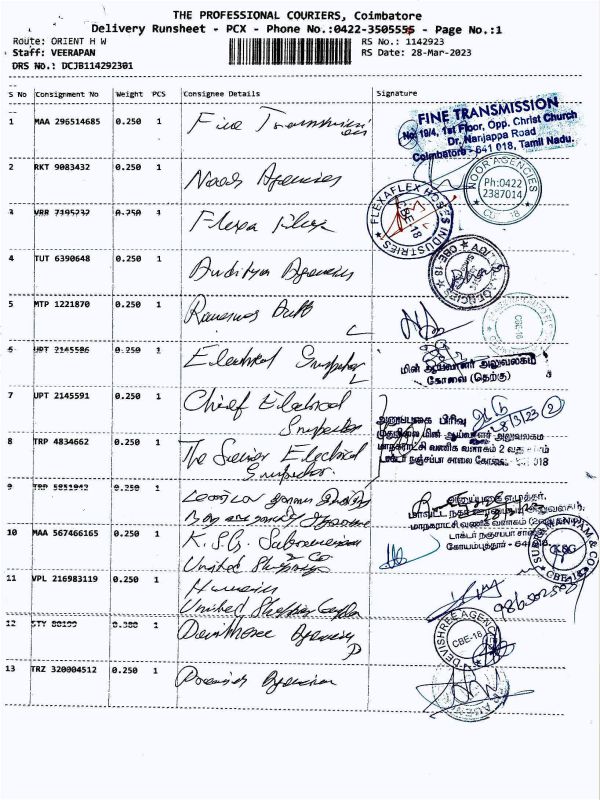 THE PROFESSIONAL COURIERS, Coimbatore
Delivery Runsheet - PCX - Phone No.:0422-3505555 - Page No.:1
Route: ORIENT H W
RS No.: 1142923
Staff: VEERAPAN
RS Date: 28-Mar-2023
DRS No.: DCJB114292301
S No Consignment No Weight PCS Consignee Details Signature
1 MAA 296514685 0.250 1 Fine Transmission
FINE TRANSMISSION
No 19/4, 1st Floor, Opp. Christ Church
Dr. Nanjappa Road
Coimbatore - 641 018, Tamil Nadu.
2 RKT 9083432 0.250 1 Noor Agencies
NOOR AGENCIES
Ph:0422
2387014
CBE - 18
3 VRR 7195232 0.250 1 Flexa Flex
FLEXAFLEX HOSES INDUSTRIES
CBE 18
4 TUT 6390648 0.250 1 Auditya Agencies
CBE-18
5 MTP 1221870 0.250 1
CBE-18
6 UPT 2145586 0.250 1 Electrical Inspector
மின் ஆய்வாளர் அலுவலகம்
கோவை (தெற்கு)
7 UPT 2145591 0.250 1 Chief Electrical
Inspector
அனுப்புகை பிரிவு
28/3/23
முதுநிலை மின் ஆய்வாளர் அலுவலகம்
8 TRP 4834662 0.250 1 The Senior Electrical
Inspector.
மாநகராட்சி வணிக வளாகம் 2
டாக்டர் நஞ்சப்பா சாலை கோவை 018
9 TRP 5851942 0.250 1
மாநகராட்சி வணிக வளாகம்
டாக்டர் நஞ்சப்பா சாலை
கோயம்புத்தூர்
10 MAA 567466165 0.250 1 K.S.G. Subramaniam
& Co
KSG
CBE-18
United Shipping
11 VPL 216983119 0.250 1
United Shipping
12 STY 80199 0.380 1 Agency
DEVISHREE AGENCIES
CBE-18
13 TRZ 320004512 0.250 1